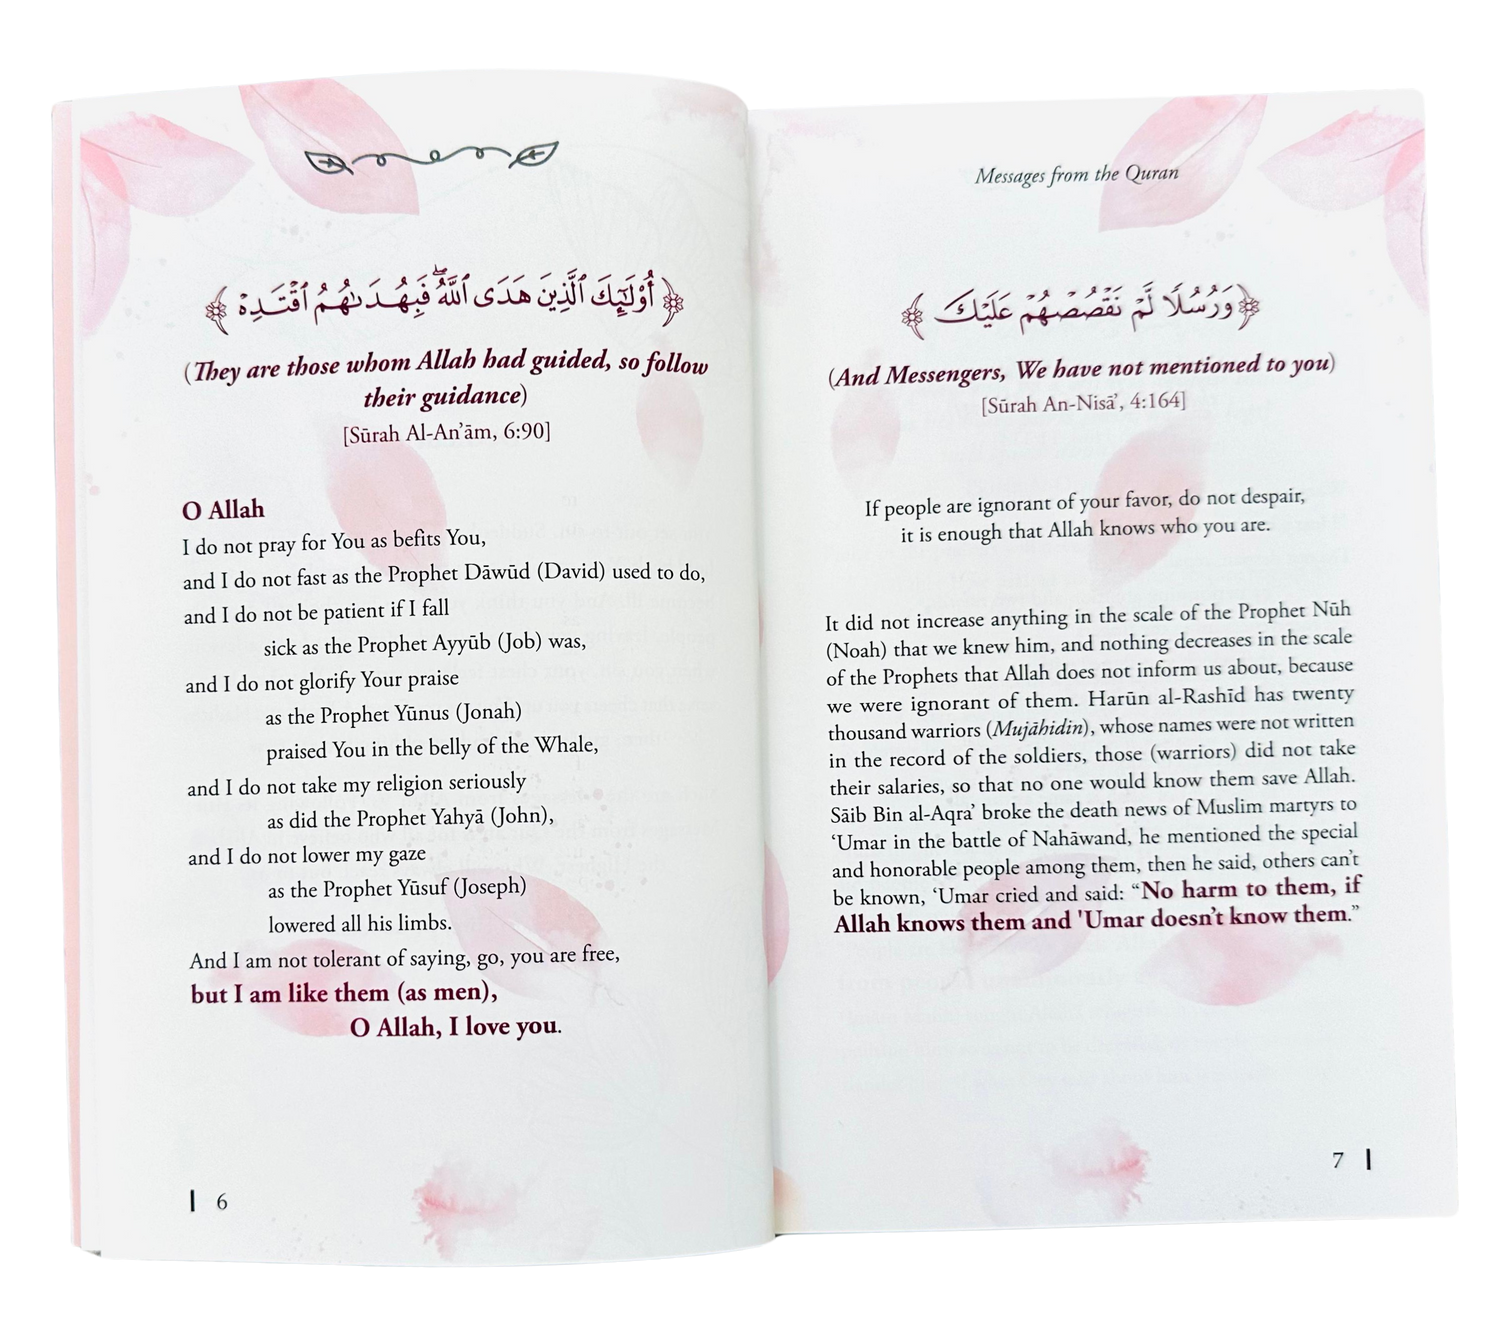 ﴿أُوْلَٰٓئِكَ ٱلَّذِينَ هَدَى ٱللَّهُۖ فَبِهُدَىٰهُمُ ٱقْتَدِهْ﴾
(They are those whom Allah had guided, so follow
their guidance)
[Sūrah Al-An’ām, 6:90]
O Allah
I do not pray for You as befits You,
and I do not fast as the Prophet Dāwūd (David) used to do,
and I do not be patient if I fall
sick as the Prophet Ayyūb (Job) was,
and I do not glorify Your praise
as the Prophet Yūnus (Jonah)
praised You in the belly of the Whale,
and I do not take my religion seriously
as did the Prophet Yahyā (John),
and I do not lower my gaze
as the Prophet Yūsuf (Joseph)
lowered all his limbs.
And I am not tolerant of saying, go, you are free,
but I am like them (as men),
O Allah, I love you.
6
Messages from the Quran
﴿وَرُسُلًا لَّمْ نَقْصُصْهُمْ عَلَيْكَ﴾
(And Messengers, We have not mentioned to you)
[Sūrah An-Nisā’, 4:164]
If people are ignorant of your favor, do not despair,
it is enough that Allah knows who you are.
It did not increase anything in the scale of the Prophet Nūh
(Noah) that we knew him, and nothing decreases in the scale
of the Prophets that Allah does not inform us about, because
we were ignorant of them. Harūn al-Rashīd has twenty
thousand warriors (Mujāhidin), whose names were not written
in the record of the soldiers, those (warriors) did not take
their salaries, so that no one would know them save Allah.
Sāib Bin al-Aqra’ broke the death news of Muslim martyrs to
‘Umar in the battle of Nahāwand, he mentioned the special
and honorable people among them, then he said, others can’t
be known, ‘Umar cried and said: “No harm to them, if
Allah knows them and 'Umar doesn’t know them.”
7